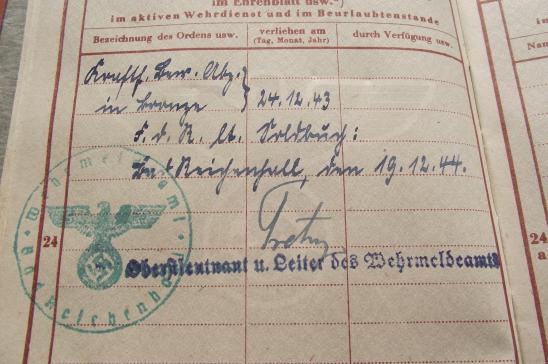 im Ehrenblatt usw.*)
im aktiven Wehrdienst und im Beurlaubtenstande
Bezeichnung des Ordens usw.
verliehen am
(Tag, Monat, Jahr)
durch Verfügung usw.
Kraftf. Bew. Abz.
in Bronze } 24.12.43
F. d. R. lt. Soldbuch:
Bad Reichenhall, den 19.12.44.
24
Oberstleutnant u. Leiter des Wehrmeldeamts
Wehrmeldeamt
Bad Reichenhall
24
a
Na